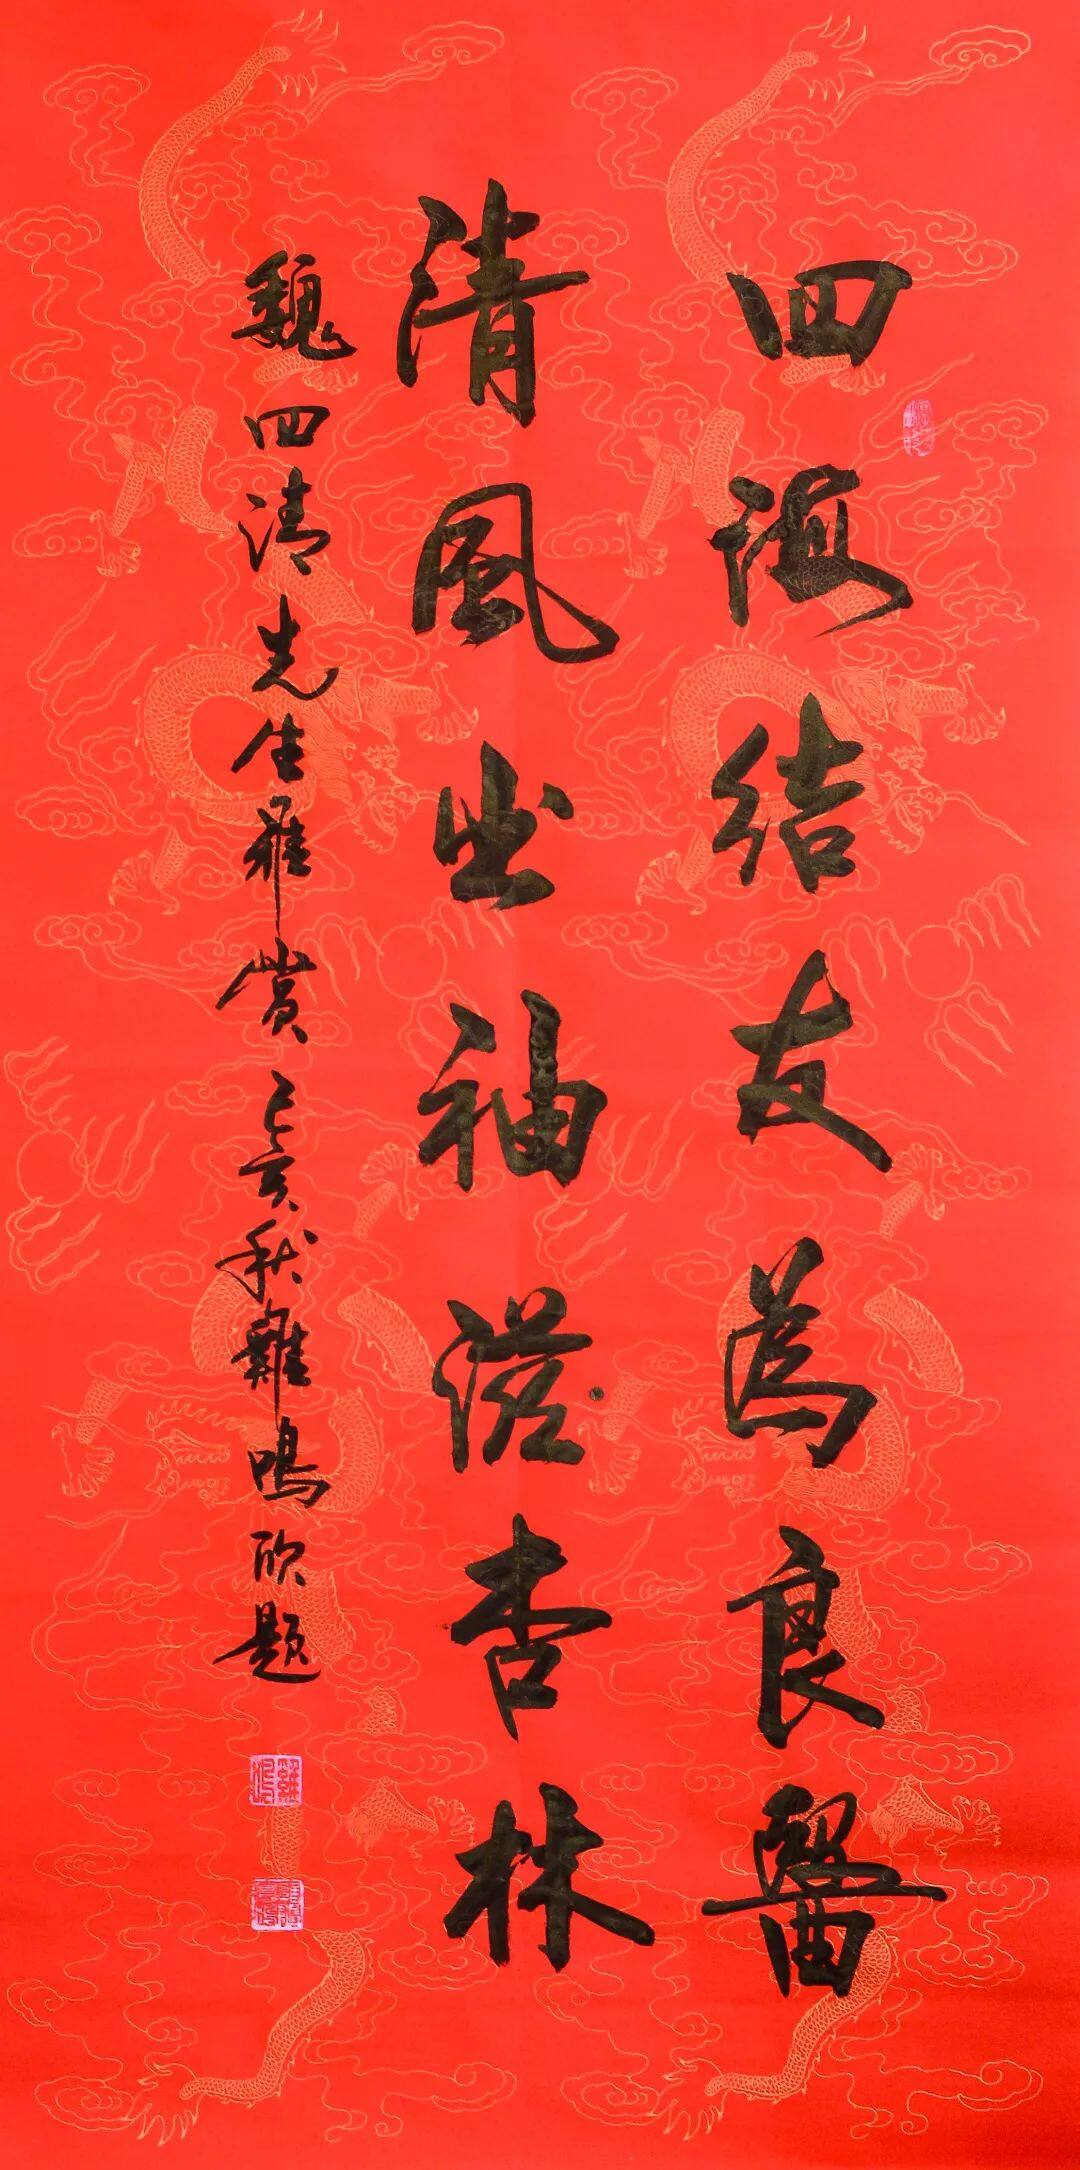 四海結友為良醫
清風出袖滋杏林
魏四清先生雅賞 己亥秋雞鳴欣題